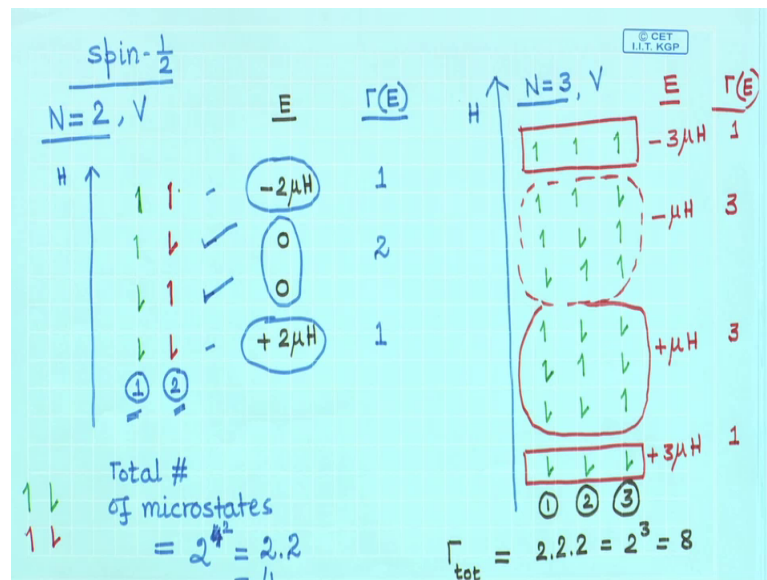 © CET
I.I.T. KGP
spin-1/2
N=2, V
E
Γ(E)
H
↑ ↑ - -2μH 1
↑ ⇂ ✓ 0 2
⇂ ↑ ✓ 0
⇂ ⇂ - +2μH 1
① ②
Total #
of microstates
= 2² = 2.2
↑ ⇂
↑ ⇂
H
N=3, V
E
Γ(E)
↑ ↑ ↑ -3μH 1
↑ ↑ ⇂ -μH 3
↑ ⇂ ↑
⇂ ↑ ↑
↑ ⇂ ⇂ +μH 3
⇂ ↑ ⇂
⇂ ⇂ ↑
⇂ ⇂ ⇂ +3μH 1
① ② ③
Γtot = 2.2.2 = 2³ = 8